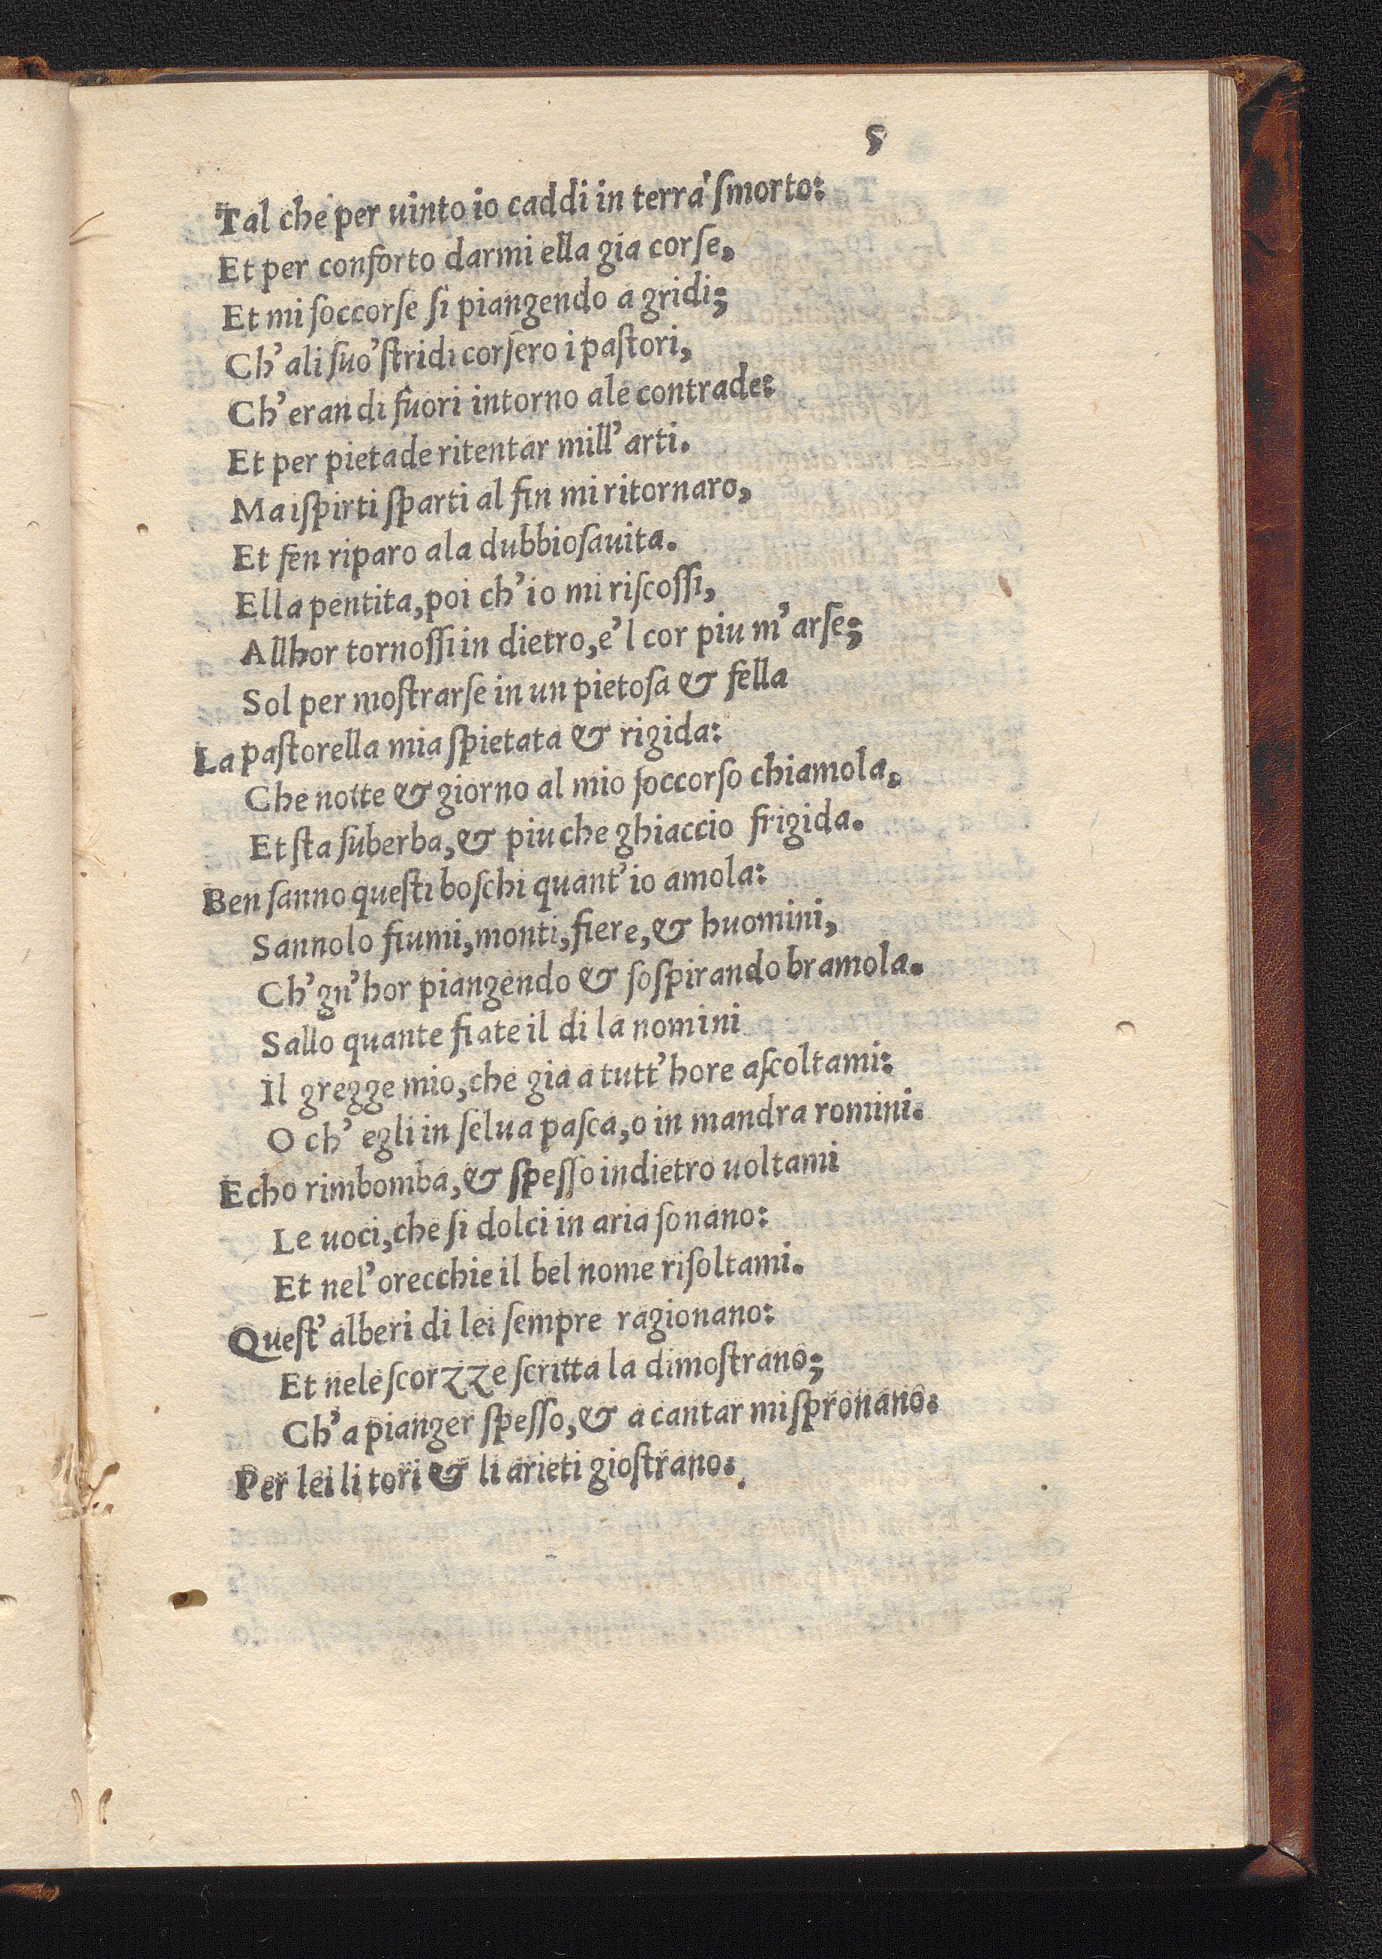 5
Tal che per uinto io caddi in terra ſmorto:
Et per conforto darmi ella gia corſe,
Et mi ſoccorſe ſi piangendo a gridi;
Ch'ali ſuo' ſtridi corſero i paſtori,
Ch'eran di fuori intorno ale contrade:
Et per pietade ritentar mill'arti.
Ma iſpirti ſparti al fin mi ritornaro,
Et fen riparo ala dubbioſa uita.
Ella pentita, poi ch'io mi riſcoſſi,
Allhor tornoſſi in dietro, e'l cor piu m'arſe;
Sol per moſtrarſe in un pietoſa & fella
La paſtorella mia ſpietata & rigida:
Che notte & giorno al mio ſoccorſo chiamola,
Et ſta ſuberba, & piu che ghiaccio frigida.
Ben ſanno queſti boſchi quant'io amola:
Sannolo fiumi, monti, fiere, & huomini,
Ch'gn'hor piangendo & ſoſpirando bramola.
Sallo quante fiate il di la nomini
Il gregge mio, che gia a tutt'hore aſcoltami:
O ch' egli in ſelua paſca, o in mandra romini.
Echo rimbomba, & ſpeſſo indietro uoltami
Le uoci, che ſi dolci in aria ſonano:
Et nel'orecchie il bel nome riſoltami.
Queſt'alberi di lei ſempre ragionano:
Et nele ſcorzze scritta la dimoſtrano;
Ch'a pianger ſpeſſo, & a cantar mi ſpronano.
Per lei li tori & li arieti gioſtrano.